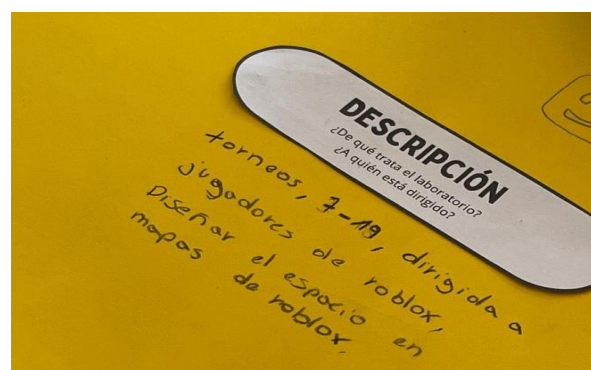 DESCRIPCIÓN
¿De qué trata el laboratorio?
¿A quién está dirigido?
torneos, 7-19, dirigida a
jugadores de roblox,
Diseñar el espacio en
mapas de roblox.